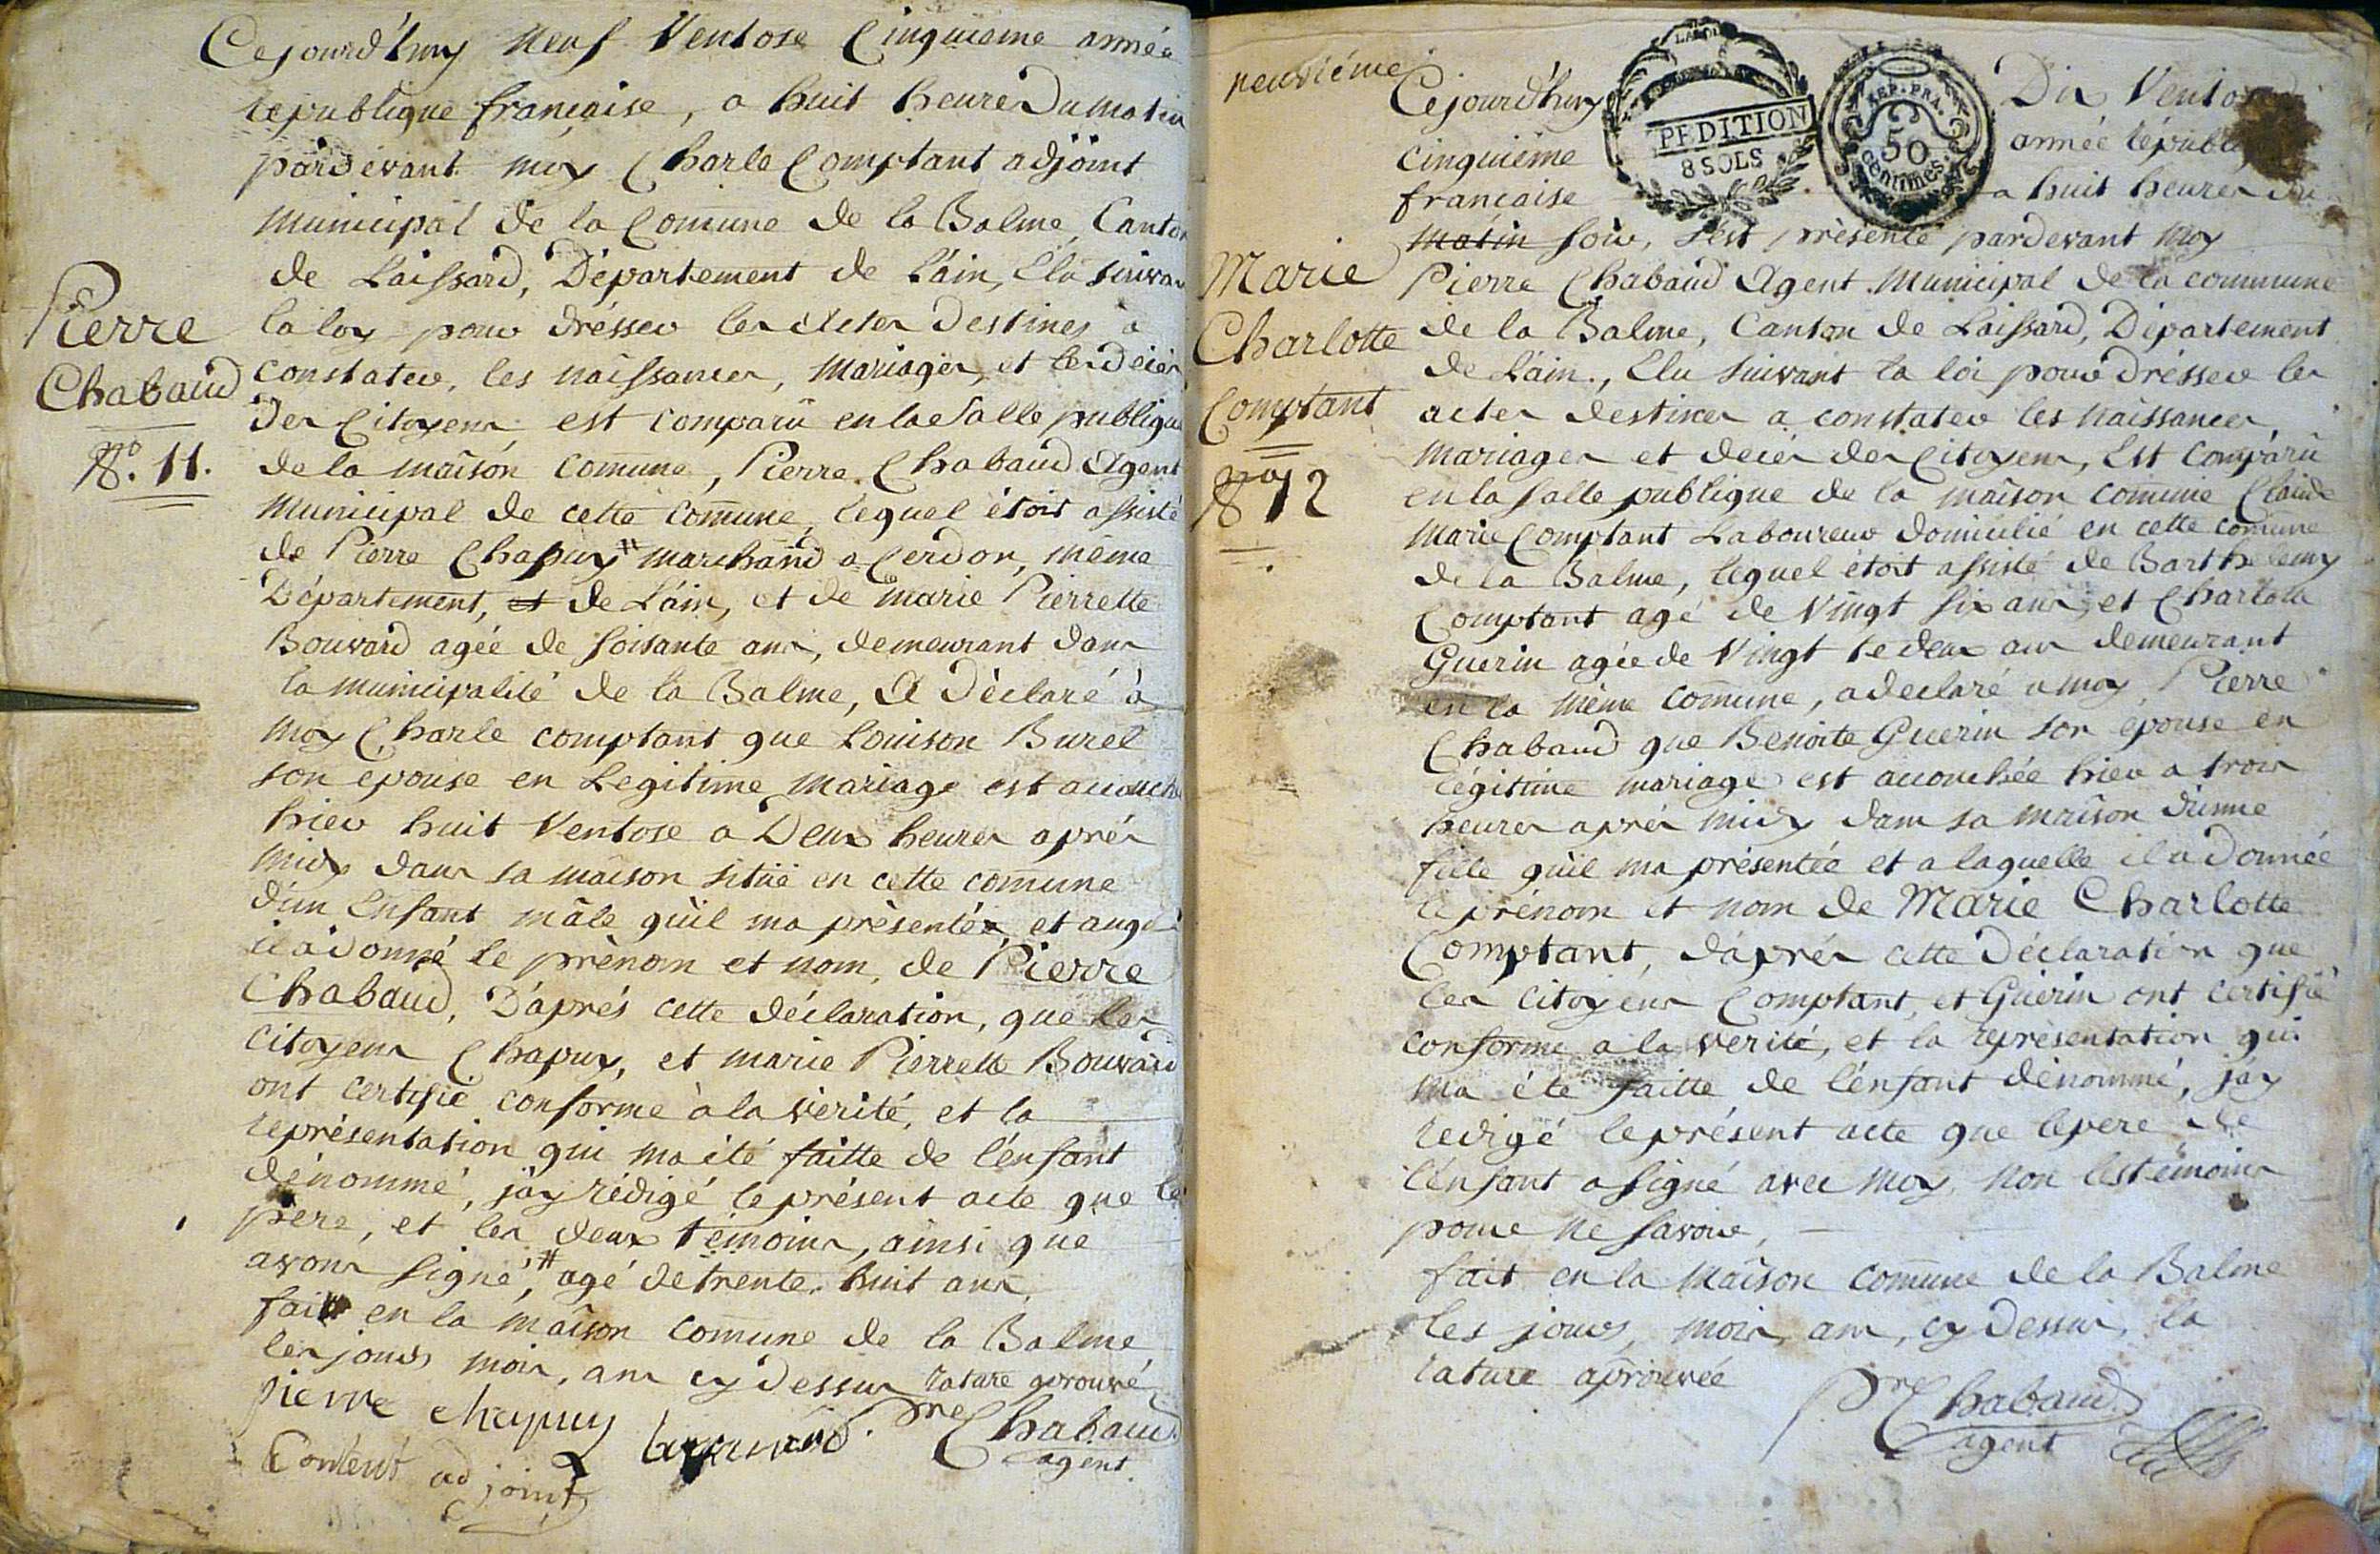 Cejourd'huy Neuf Ventose Cinquieme année
republique française, a huit heures du matin
pardevant moy Charle Comptant adjoint
Municipal de la Comune de la Balme, Canton
de Laissard, Département de L'ain, Elu suivan
la loy pour drésser les Actes Destines a
Constater, les naissances, Mariages, et les deiés
Des Citoyens, est comparü en la Salle publique
de la maîson comune, Pierre Chabaud Agent
Municipal de cette comune, lequel étoit assisté
de Pierre Chapuy # marchand a Cerdon, même
Département, et de L'ain, et de marie Pierrette
Bouvard agée de soisante ans, demeurant dans
la municipalité de la Balme, A Déclaré à
moy Charle comptant que Louison Burel
son epouse en Legitime mariage est accouché
hier huit Ventose a Deux heures aprés
midy dans sa maison sitüé en cette comune
d'un Enfant mâle qu'il ma présentée, et auq
il a donné le prénom et nom, de Pierre
Chabaud, D'aprés cette déclaration, que les
Citoyens Chapuy, et marie Pierrette Bouvard
ont certifié conforme à la vérité, et la
représentation qui ma été faitte de l'énfant
dénommé, j'ay rédigé le présent acte que le
pere, et les deux témoins, ainsi que
avons signé, # agé de trente-huit ans
fait en la maîson comune de la Balme
les jours mois, ans cy dessus rature aprouvé
pierre chapuy bouvard. Pre Chabaud
Content adjoint agent.
Pierre
Chabaud
No. 11.
neuvième
Cejourd'huy Dix Ventose
cinquième année républi
française a huit heures du
matin soir, s'est présenté pardevant moy
Pierre Chabaud Agent Municipal de la commune
de la Balme, Canton de Laissard, Département
de L'ain., Elu suivant la loi pour drésser les
actes destines a constater les naissances,
Mariages et deiés des Citoyens, Est Comparü
en la salle publique de la maîson comune Claude
Marie Comptant Laboureur domicilié en cette comune
de la Balme, lequel étoit assisté de Barthelemy
Comptant agé de Vingt six ans, et Charlotte
Guerin agée de Vingt te deux ans demeurant
en la même comune, a declaré a moy Pierre
Chabaud que Benoite Guerin son épouse en
légitime mariage est accouchée hier a trois
heures aprés midy dans sa maîson d'une
fille qu'il ma présentée et a laquelle il a donnée
le prénom et nom de Marie Charlotte
Comptant, d'aprés cette déclaration que
les Citoyens Comptant, et Guérin ont certifié
conforme a la verité, et la représentation qui
ma été faitte de l'énfant dénommé, j'ay
redigé le présent acte que le pere de
l'énfant a signé avec moy, non les témoins
pour ne savoir,
fait en la maîson comune de la Balme
les jours, mois, ans, cy dessus, la
rature aprouvée
Pre Chabaud
agent
Marie
Charlotte
Comptant
No 12
PEDITION
8 SOLS
REP. FRA.
50
centimes.